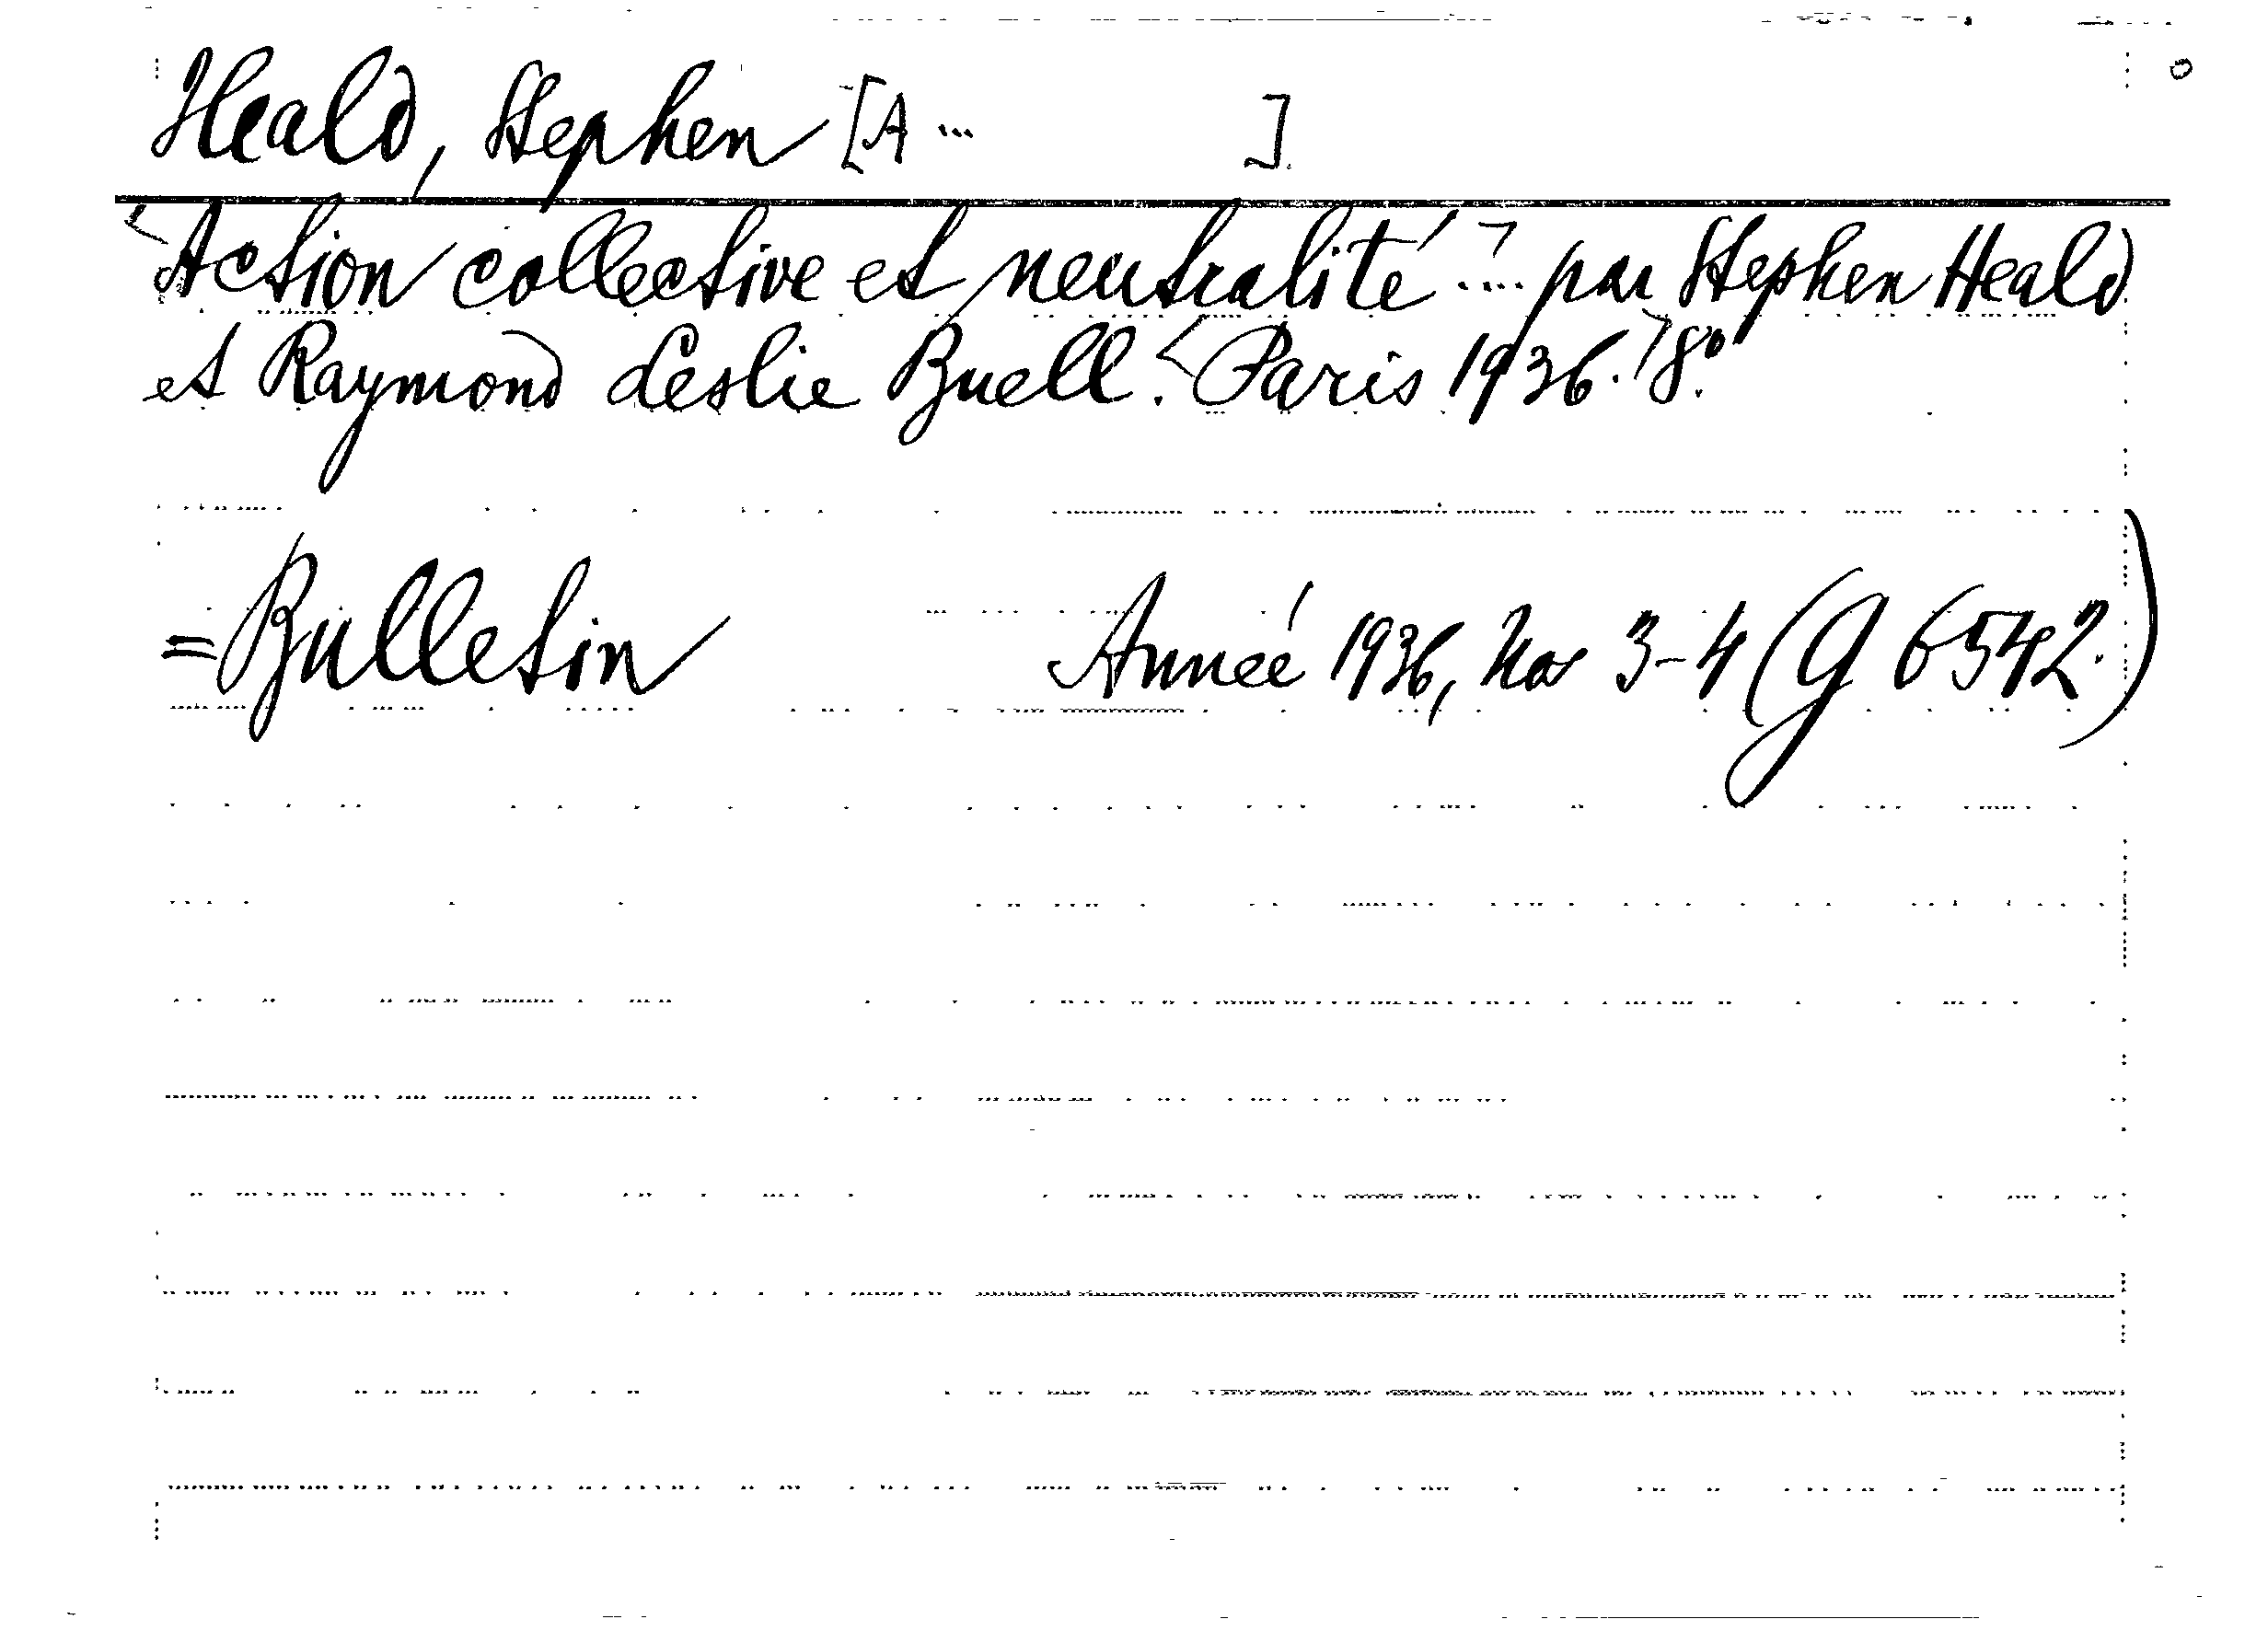 Heald, Stephen [A ... ].
<Action collective et neutralité ...> par Stephen Heald
et Raymond Leslie Buell. <Paris 1936.> 8°.
= Bulletin Année 1936, Nos 3-4 (G 6542.)